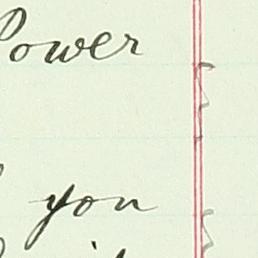 Power
you